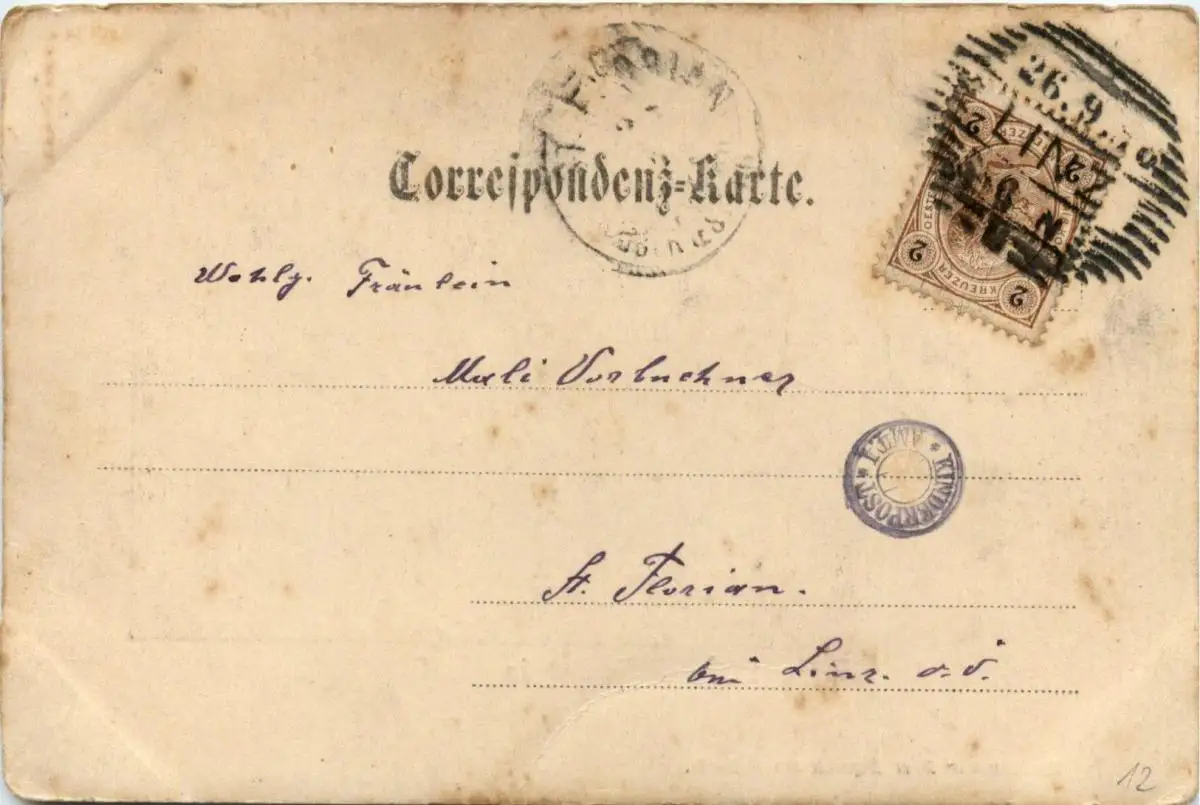 ST. FLORIAN
Correspondenz-Karte.
26.9.
LINZ
2 KREUZER 2
Wohlg. Fräulein
Mali Vorbuchner
KINDERPOST * AMT.1 *
St. Florian.
bei Linz. o.ö.
12